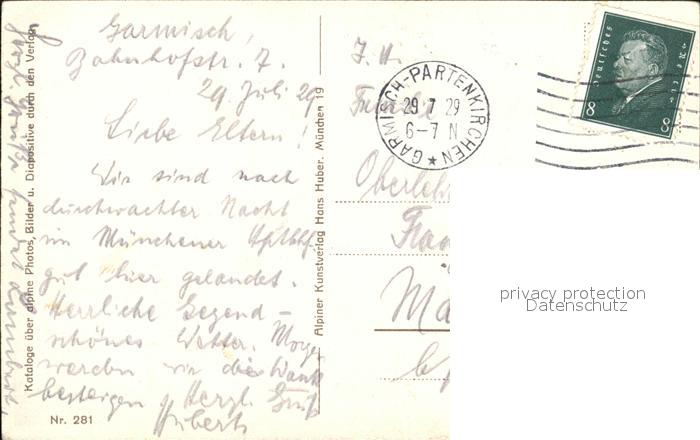 Garmisch,
Bahnhofstr. 7.
29. Juli 29
Liebe Eltern!
Wir sind nach
durchwachter Nacht
im Münchener Hptbhf.
gut hier gelandet.
Herrliche Gegend –
schönes Wetter. Morgen
werden wir die Wank
besteigen. Herzl. Gruß
Hubert
Kataloge über alpine Photos, Bilder u. Diapositive durch den Verlag
Nr. 281
Alpiner Kunstverlag Hans Huber. München 19
GARMISCH-PARTENKIRCHEN
29 7 29
6–7 N
Deutsches Reich
8 8
Oberleh
Frau
Mü
privacy protection
Datenschutz